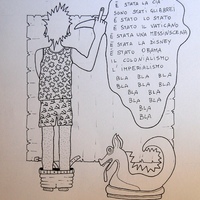 È STATA LA CIA
SONO STATI GLI EBREI
È STATO LO STATO
È STATO IL VATICANO
È STATA UNA MESSINSCENA
È STATA LA DISNEY
È STATO OBAMA
IL COLONIALISMO
L'IMPERIALISMO
BLA BLA BLA
BLA BLA
BLA BLA BLA
BLA BLA
BLA BLA
BLA